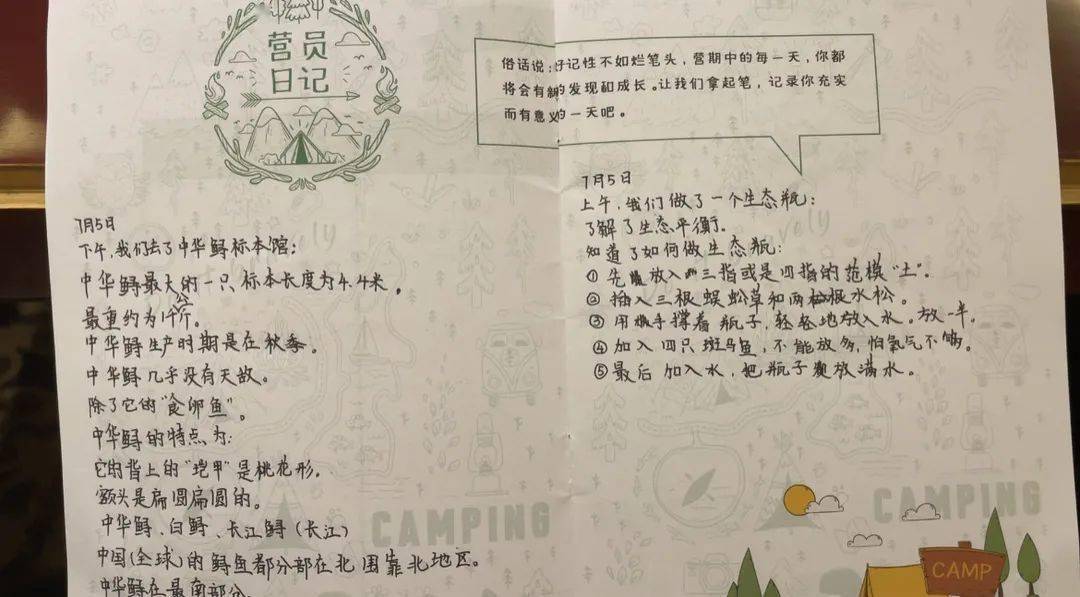 营员
日记
7月5日
下午,我们去了中华鲟标本馆:
中华鲟最大的一只标本长度为4.4米。
最重约为1千公斤。
中华鲟生产时期是在秋季。
中华鲟几乎没有天敌。
除了它的"食卵鱼"。
中华鲟的特点为:
它的背上的"铠甲"是桃花形。
额头是扁圆扁圆的。
中华鲟、白鲟、长江鲟(长江)
中国(全球)的鲟鱼都分部在北围靠北地区。
中华鲟在最南部分。
CAMPING
俗话说:好记性不如烂笔头,营期中的每一天,你都
将会有新的发现和成长。让我们拿起笔,记录你充实
而有意义的一天吧。
7月5日
上午,我们做了一个生态瓶:
了解了生态平衡。
知道了如何做生态瓶:
①先放入三指或是四指的范模"土"。
②插入三根蜈蚣草和两根水松。
③用手撑着瓶子,轻轻地放入水。放一半。
④加入四只斑马鱼,不能放多,怕氧气不够。
⑤最后加入水,把瓶子放满水。
CAMPING
CAMP